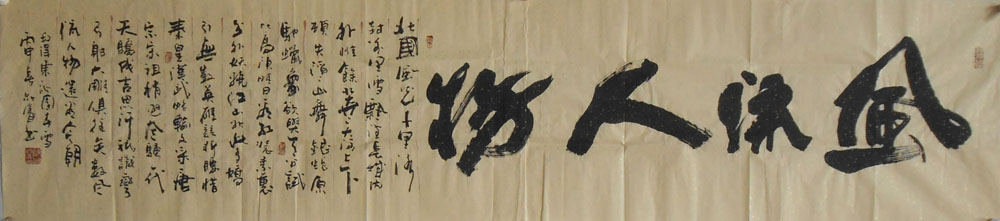 風流人物
北國風光千里冰
封萬里雪飄望長城內
外惟餘莽莽大河上下
頓失滔滔山舞銀蛇原
馳蠟象欲與天公試
比高須晴日看紅裝素裹
分外妖嬈江山如此多嬌
引無數英雄競折腰惜
秦皇漢武略輸文采唐
宗宋祖稍遜風騷一代
天驕成吉思汗祇識彎
弓射大雕俱往矣數風
流人物還看今朝
毛澤東沁園春雪
春書